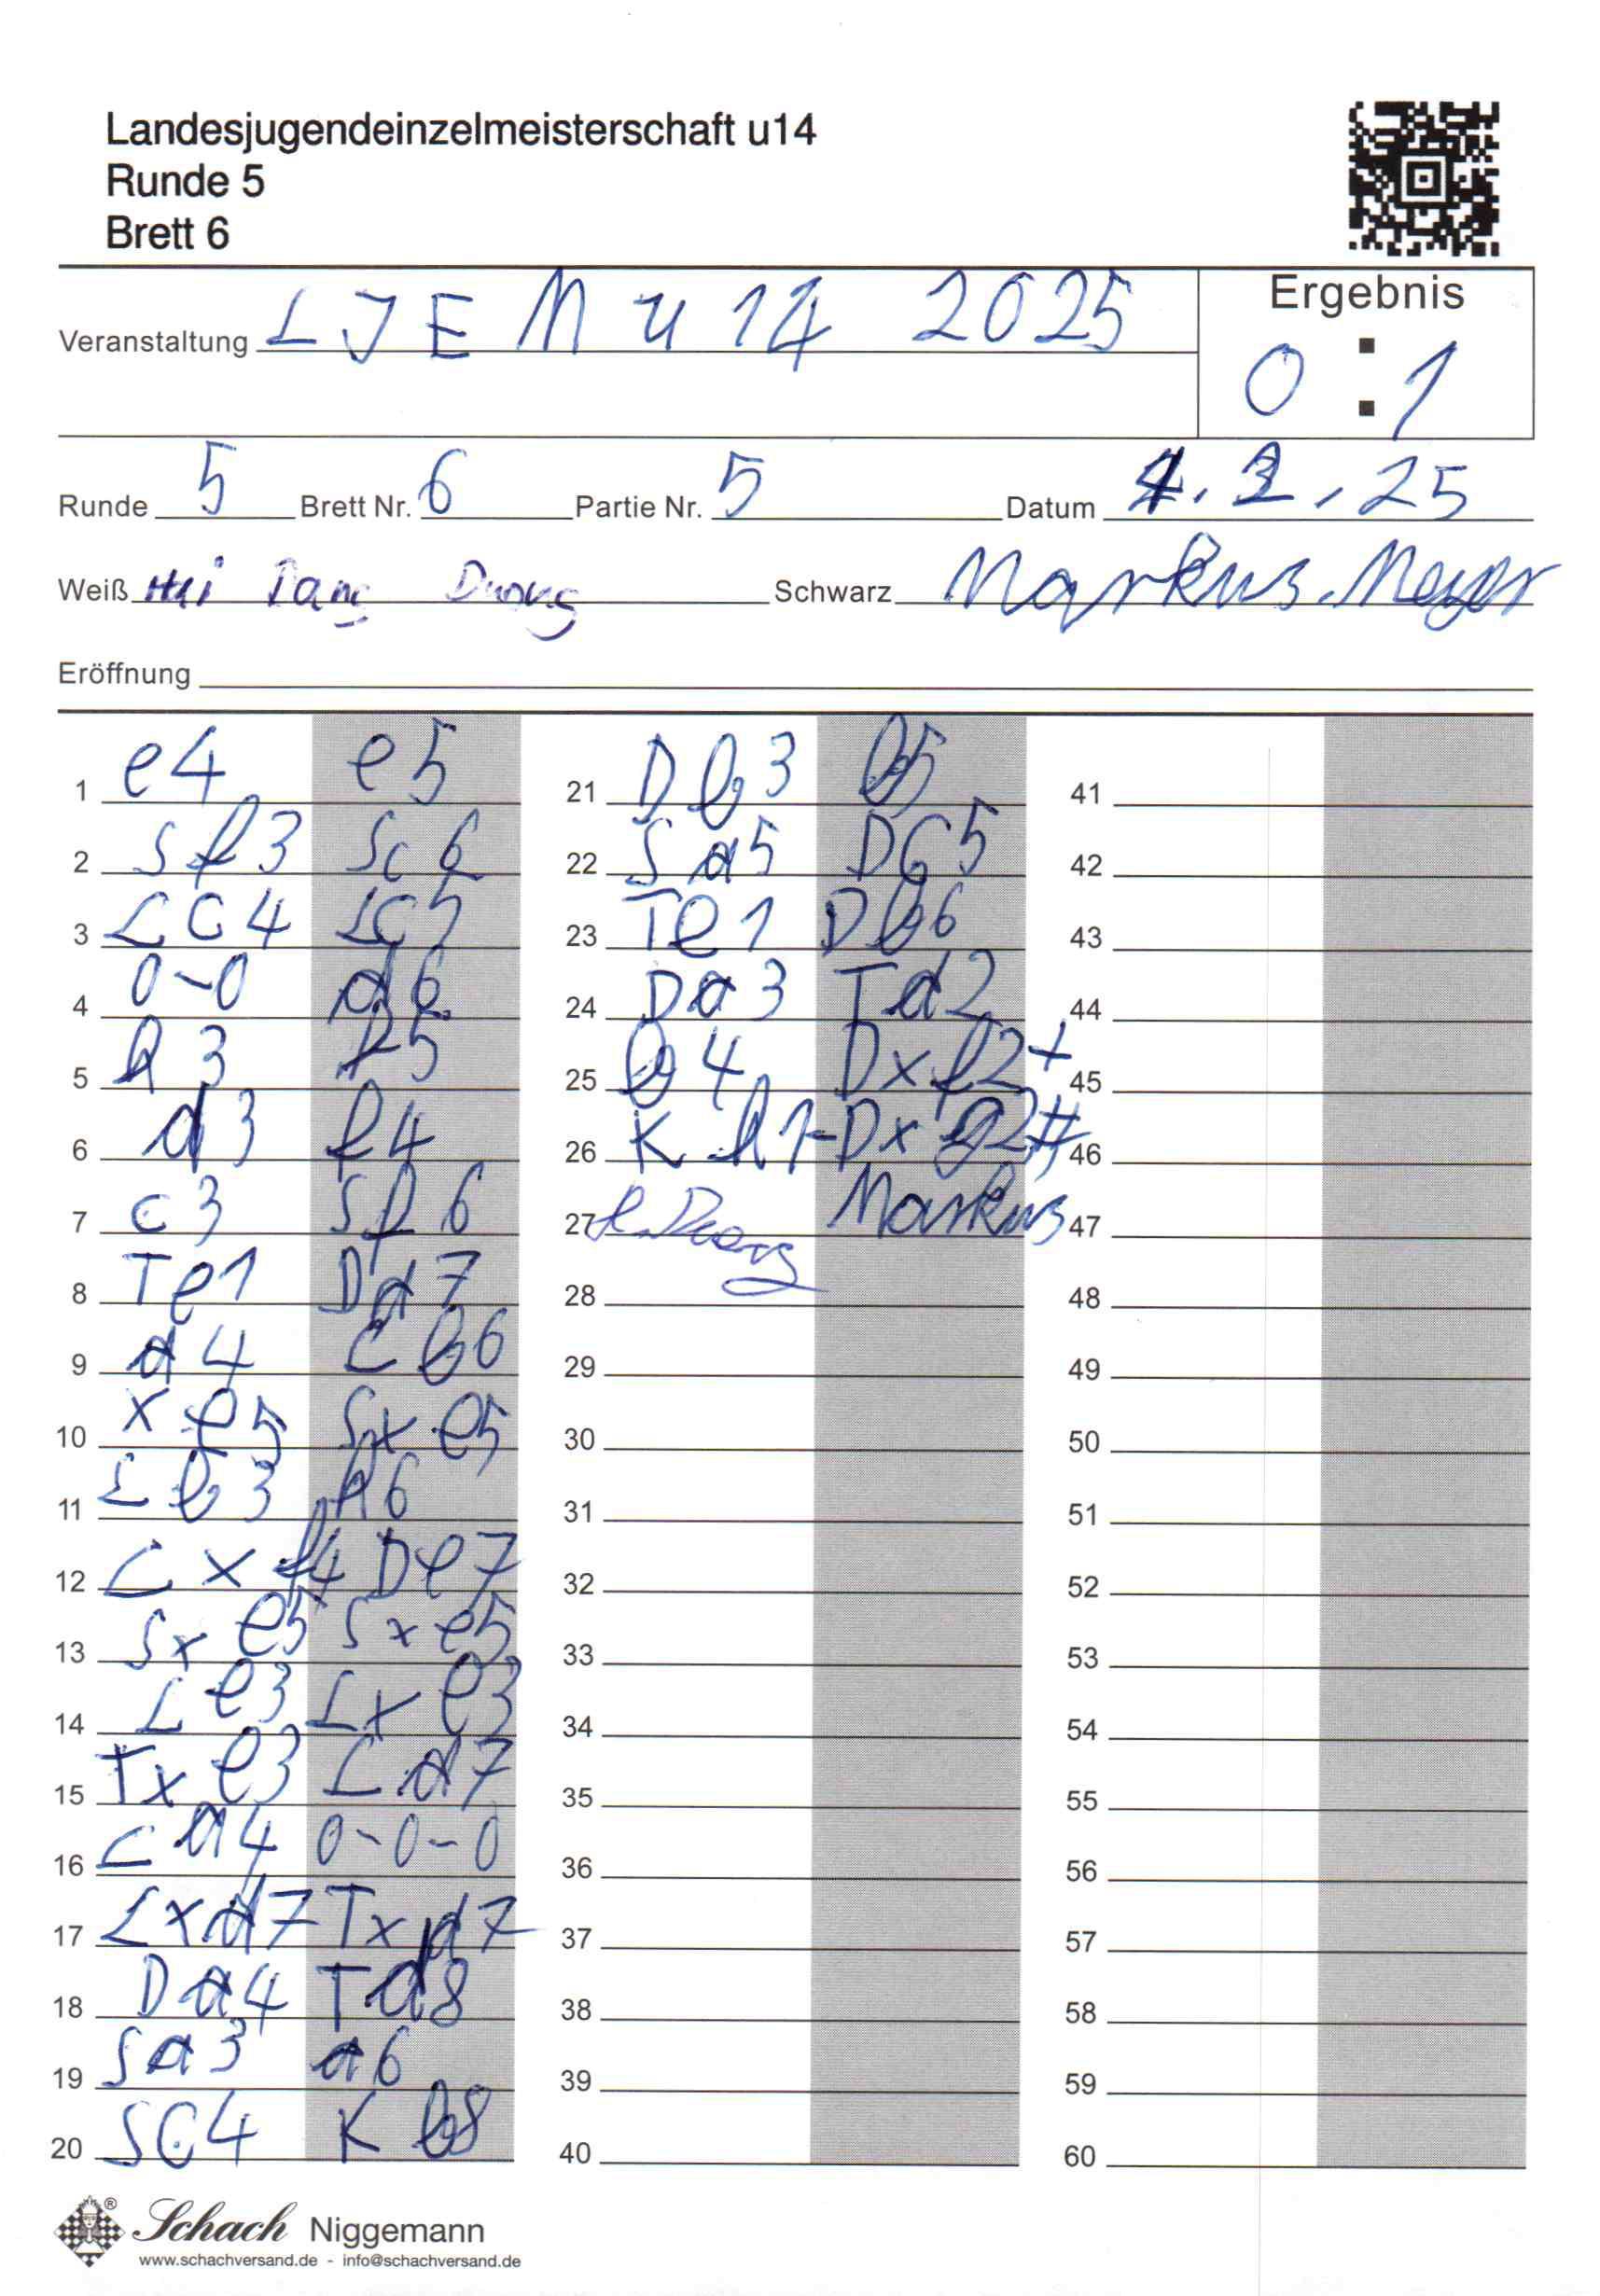 Landesjugendeinzelmeisterschaft u14
Runde 5
Brett 6
Veranstaltung LJEM u 14 2025
Ergebnis
0 : 1
Runde 5 Brett Nr. 6 Partie Nr. 5 Datum 1. 3. 25
Weiß Hai Dang Duong Schwarz Markus Meyer
Eröffnung
1 e4 e5
2 Sf3 Sc6
3 Lc4 Lc5
4 0-0 d6
5 h3 f5
6 d3 f4
7 c3 Sf6
8 Te1 Dd7
9 d4 Lb6
10 xe5 Sxe5
11 Lb3 h6
12 Lxf4 De7
13 Sxe5 Sxe5
14 Le3 Lxe3
15 Txe3 Ld7
16 La4 0-0-0
17 Lxd7 Txd7
18 Da4 Td8
19 Sa3 a6
20 Sc4 Kb8
21 Db3 b5
22 Sa5 DG5
23 Te1 Db6
24 Da3 Td2
25 b4 Dxf2+
26 Kh1 Dxg2#
27 H. Duong Markus
28
29
30
31
32
33
34
35
36
37
38
39
40
41
42
43
44
45
46
47
48
49
50
51
52
53
54
55
56
57
58
59
60
® Schach Niggemann
www.schachversand.de - info@schachversand.de